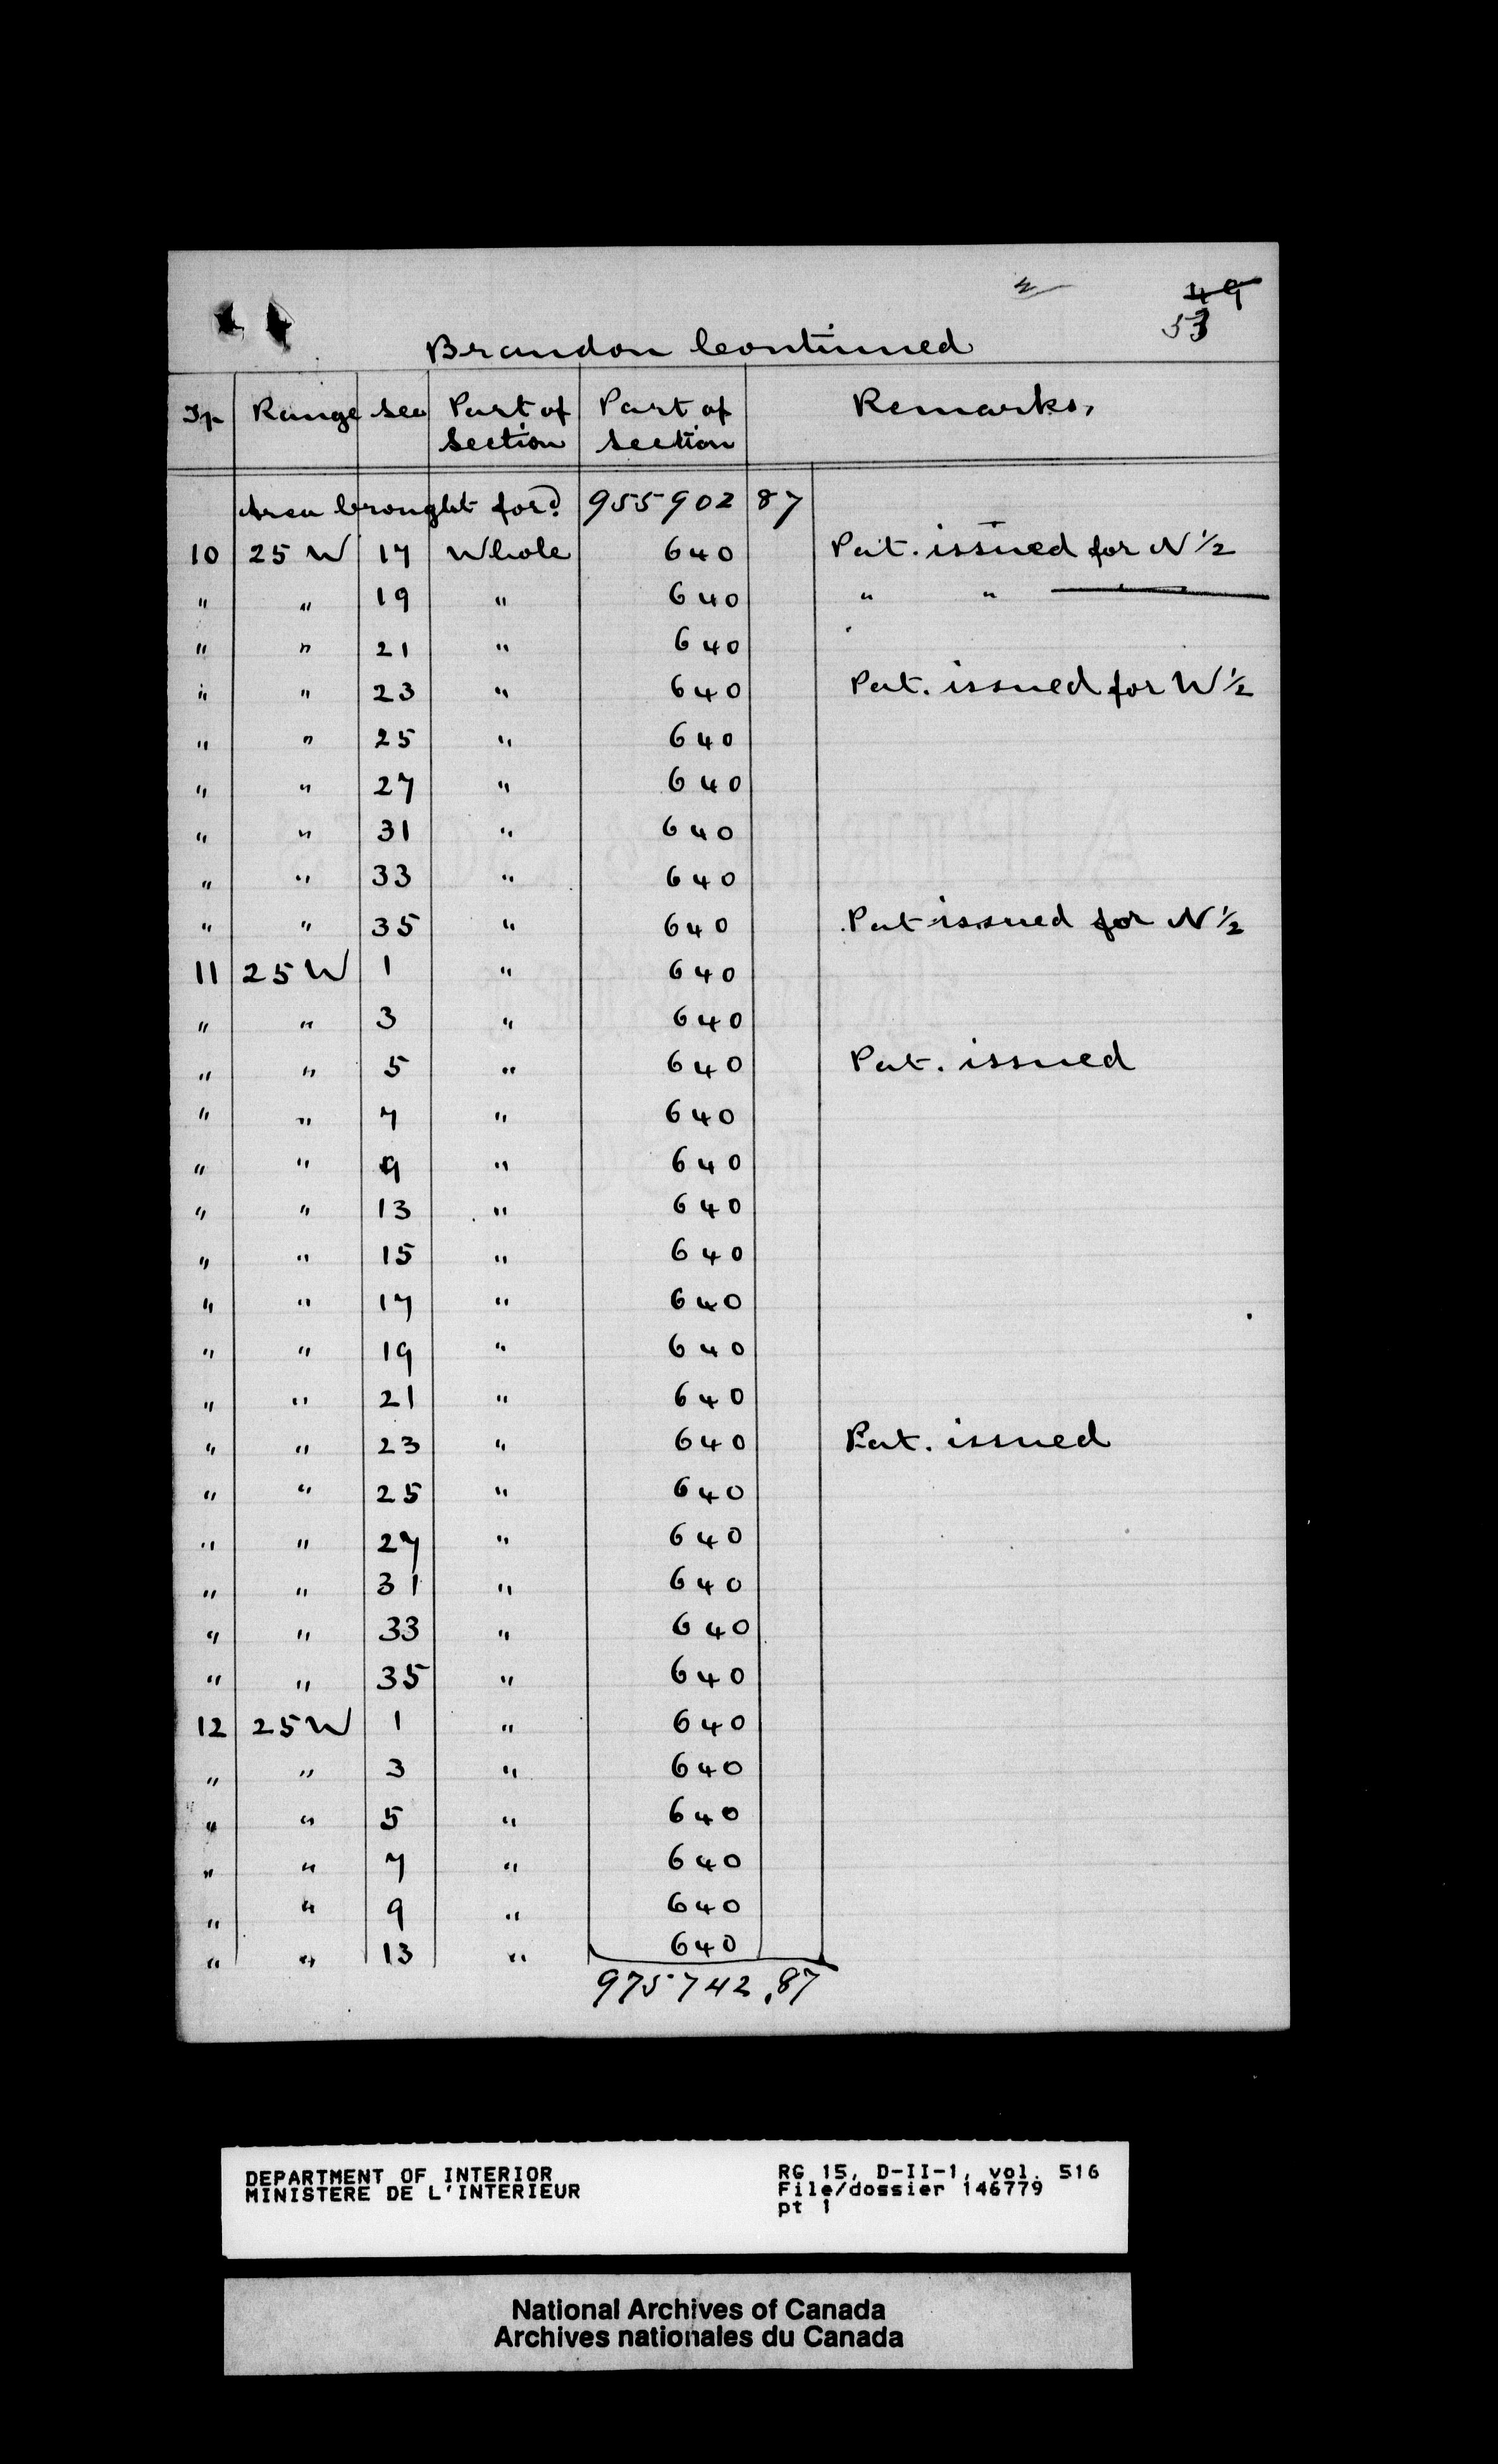 49
53
Brandon Continued
Tp Range Sec Part of Section Part of Section Remarks.
Area brought ford. 955902 87
10 25 W 17 Whole 640 Pat. issued for N ½
" " 19 " 640 " "
" " 21 " 640
" " 23 " 640 Pat. issued for W ½
" " 25 " 640
" " 27 " 640
" " 31 " 640
" " 33 " 640
" " 35 " 640 Pat issued for N ½
11 25 W 1 " 640
" " 3 " 640
" " 5 " 640 Pat. issued
" " 7 " 640
" " 9 " 640
" " 13 " 640
" " 15 " 640
" " 17 " 640
" " 19 " 640
" " 21 " 640
" " 23 " 640 Pat. issued
" " 25 " 640
" " 27 " 640
" " 31 " 640
" " 33 " 640
" " 35 " 640
12 25 W 1 " 640
" " 3 " 640
" " 5 " 640
" " 7 " 640
" " 9 " 640
" " 13 " 640
975742.87
DEPARTMENT OF INTERIOR RG 15, D-II-1, vol. 516
MINISTERE DE L'INTERIEUR File/dossier 146779
pt 1
National Archives of Canada
Archives nationales du Canada